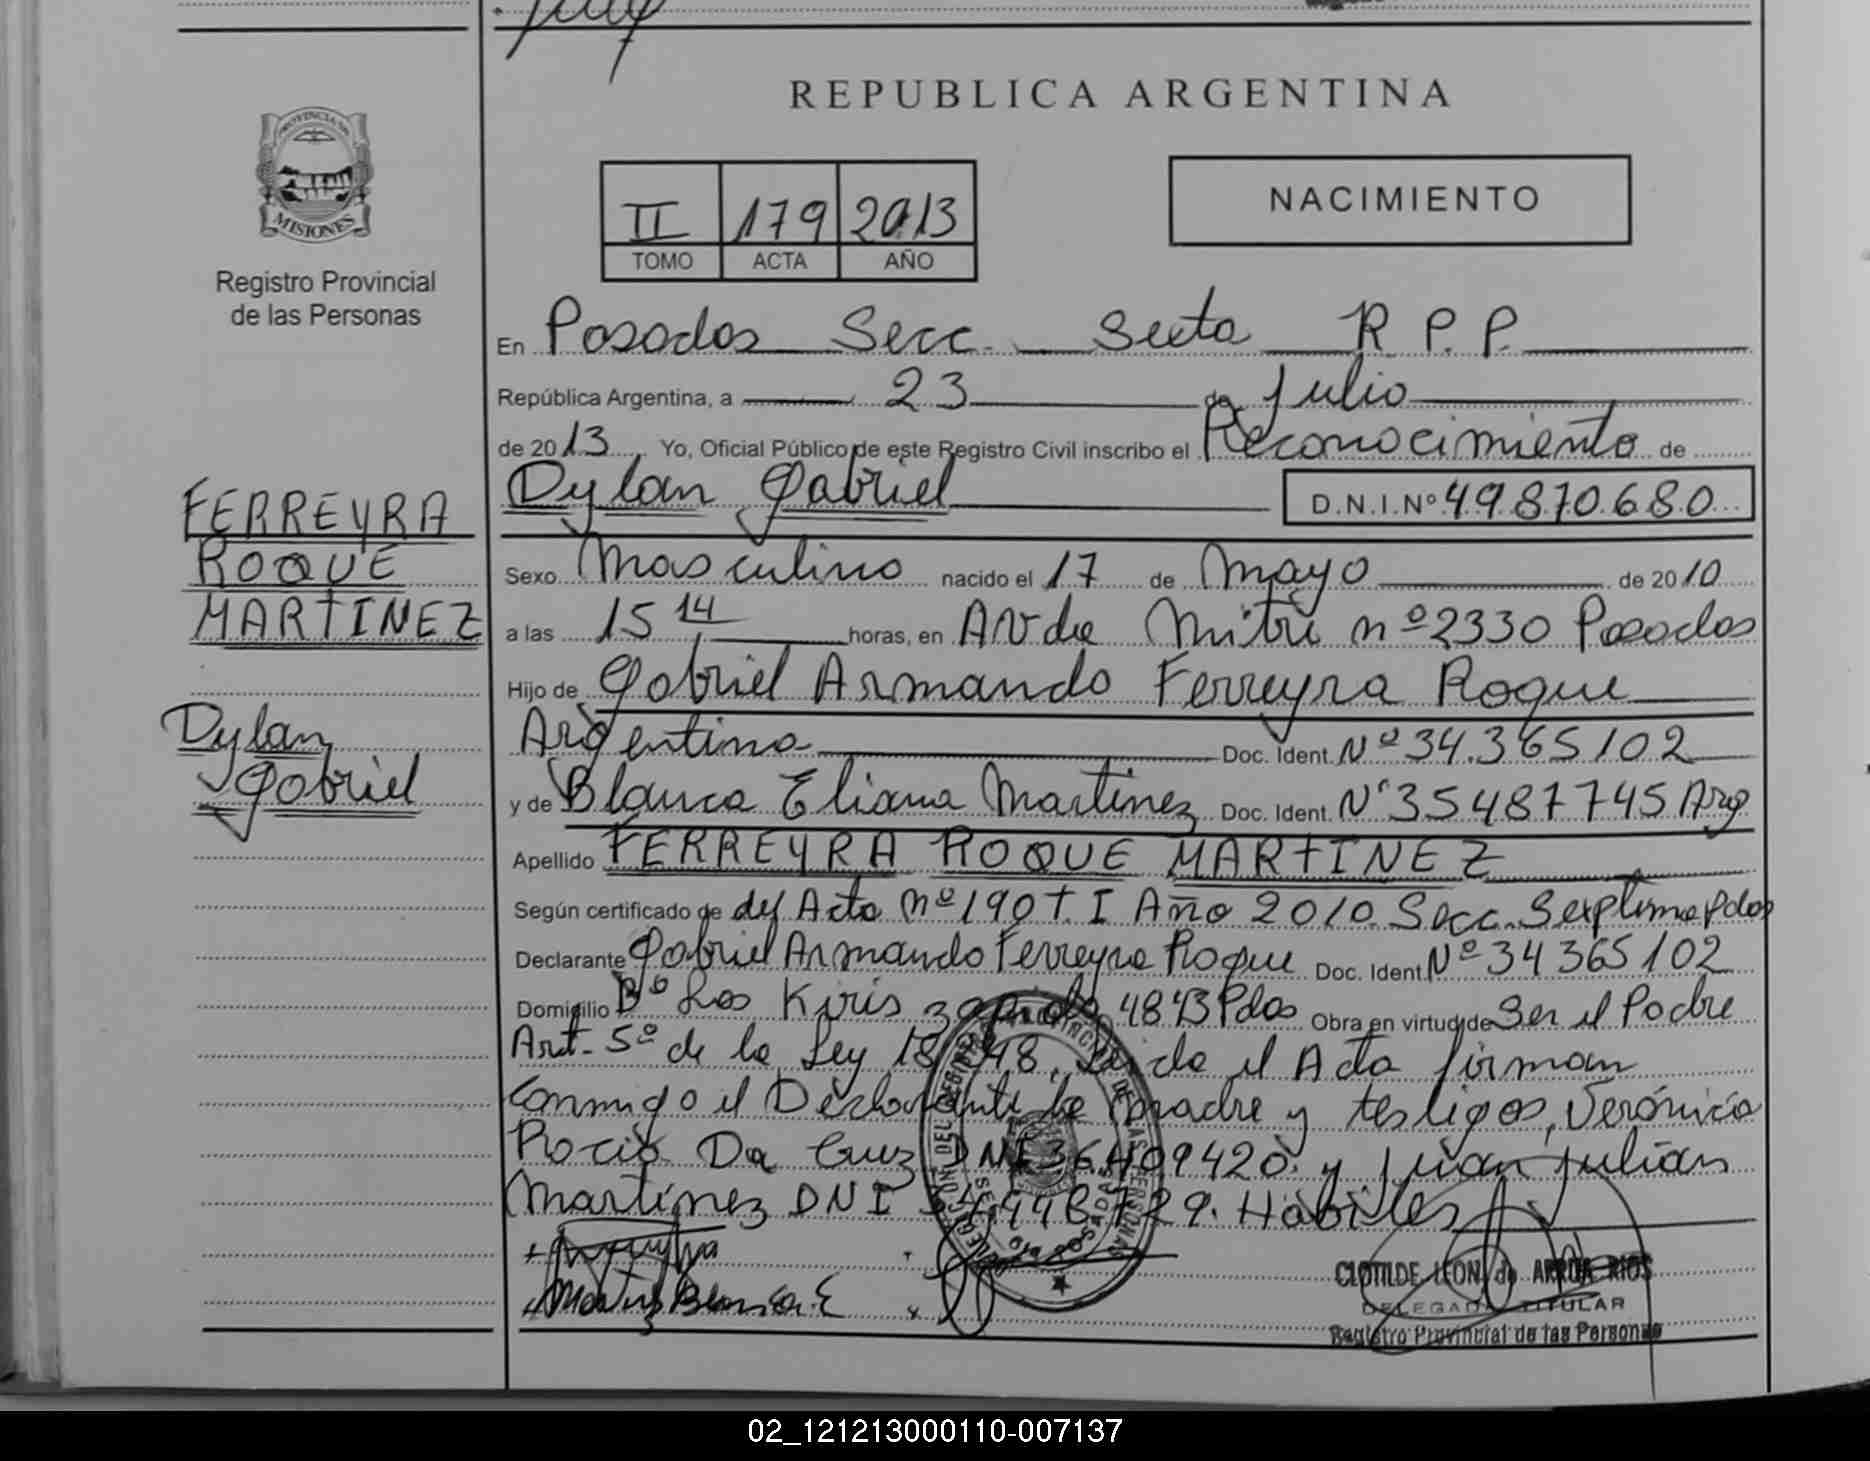 REPUBLICA ARGENTINA
PROVINCIA DE
MISIONES
Registro Provincial
de las Personas
II 179 2013
TOMO ACTA AÑO
NACIMIENTO
En Posadas Secc. Sexta R.P.P.
República Argentina, a 23 de Julio
de 2013 Yo, Oficial Público de este Registro Civil inscribo el Reconocimiento de
Dylan Gabriel D.N.I.Nº 49.870.680
FERREYRA
ROQUE
MARTINEZ
Dylan
Gabriel
Sexo Masculino nacido el 17 de Mayo de 2010
a las 15 14 horas, en Avda Mitre nº 2330 Posadas
Hijo de Gabriel Armando Ferreyra Roque
Argentino Doc. Ident. Nº 34.365102
y de Blanca Eliana Martinez Doc. Ident. Nº 35487745 Arg
Apellido FERREYRA ROQUE MARTINEZ
Según certificado de del Acta Nº 190 T. I Año 2010. Secc. Septima Pdas
Declarante Gabriel Armando Ferreyra Roque Doc. Ident. Nº 34365102
Domicilio Bº Los Kiris 4843 Pdas Obra en virtud de Ser el Padre
Art. 5º de la Ley 18 248, Leida el Acta firman
Conmigo el Declarante la madre y testigos, Verónica
Rocio Da Cruz DNI 36409420 y Juan Julián
Martínez DNI Habiles
Martinez Blanca E
CLOTILDE LEON de ARROA RIOS
DELEGADA TITULAR
Registro Provincial de las Personas
02_121213000110-007137